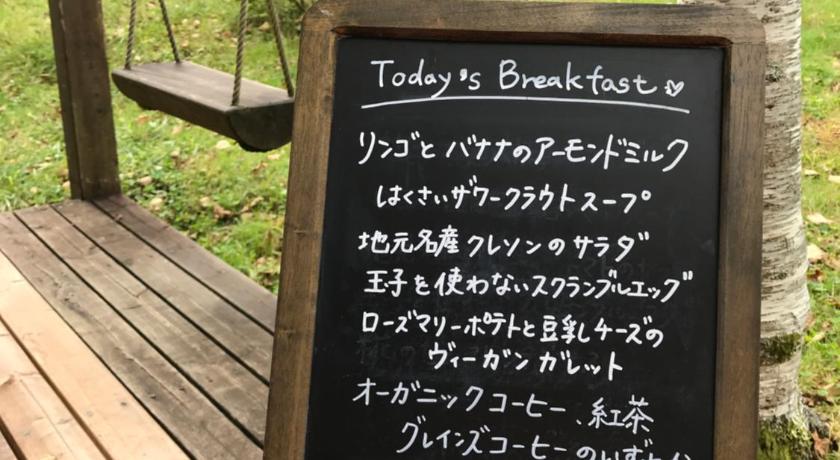 Today's Breakfast
リンゴとバナナのアーモンドミルク
はくさいザワークラウトスープ
地元名産クレソンのサラダ
玉子を使わないスクランブルエッグ
ローズマリーポテトと豆乳チーズの
ヴィーガンガレット
オーガニックコーヒー、紅茶
グレインズコーヒーのいずれか